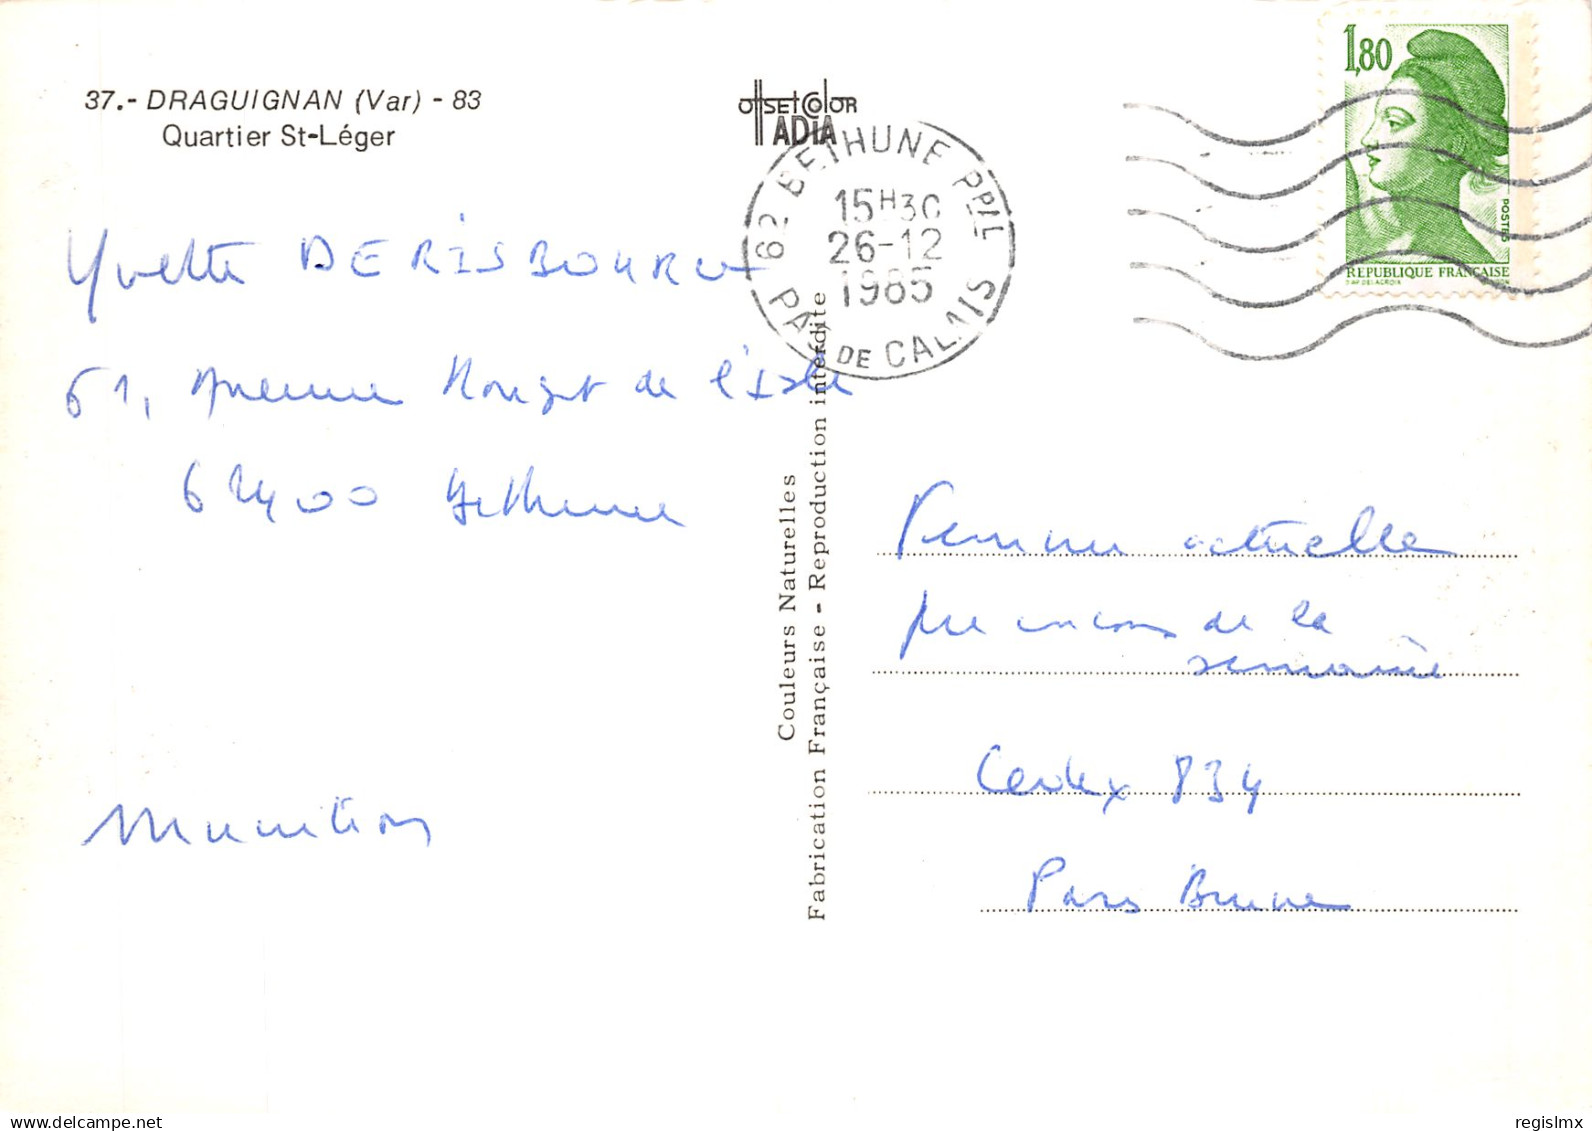 37.- DRAGUIGNAN (Var) - 83
Quartier St-Léger
OffSEt ColOR
ADIA
62 BETHUNE PPAL
15H30
26-12
1985
PAS DE CALAIS
1,80
POSTES
REPUBLIQUE FRANÇAISE
D'AP. DELACROIX
Yvette DERISBOURG
61, Avenue Rouget de l'Isle
62400 Bethune
Munition
Couleurs Naturelles
Fabrication Française - Reproduction interdite
Femme actuelle
jeu concours de la
semaine
Cedex 834
Paris Brune
regislmx